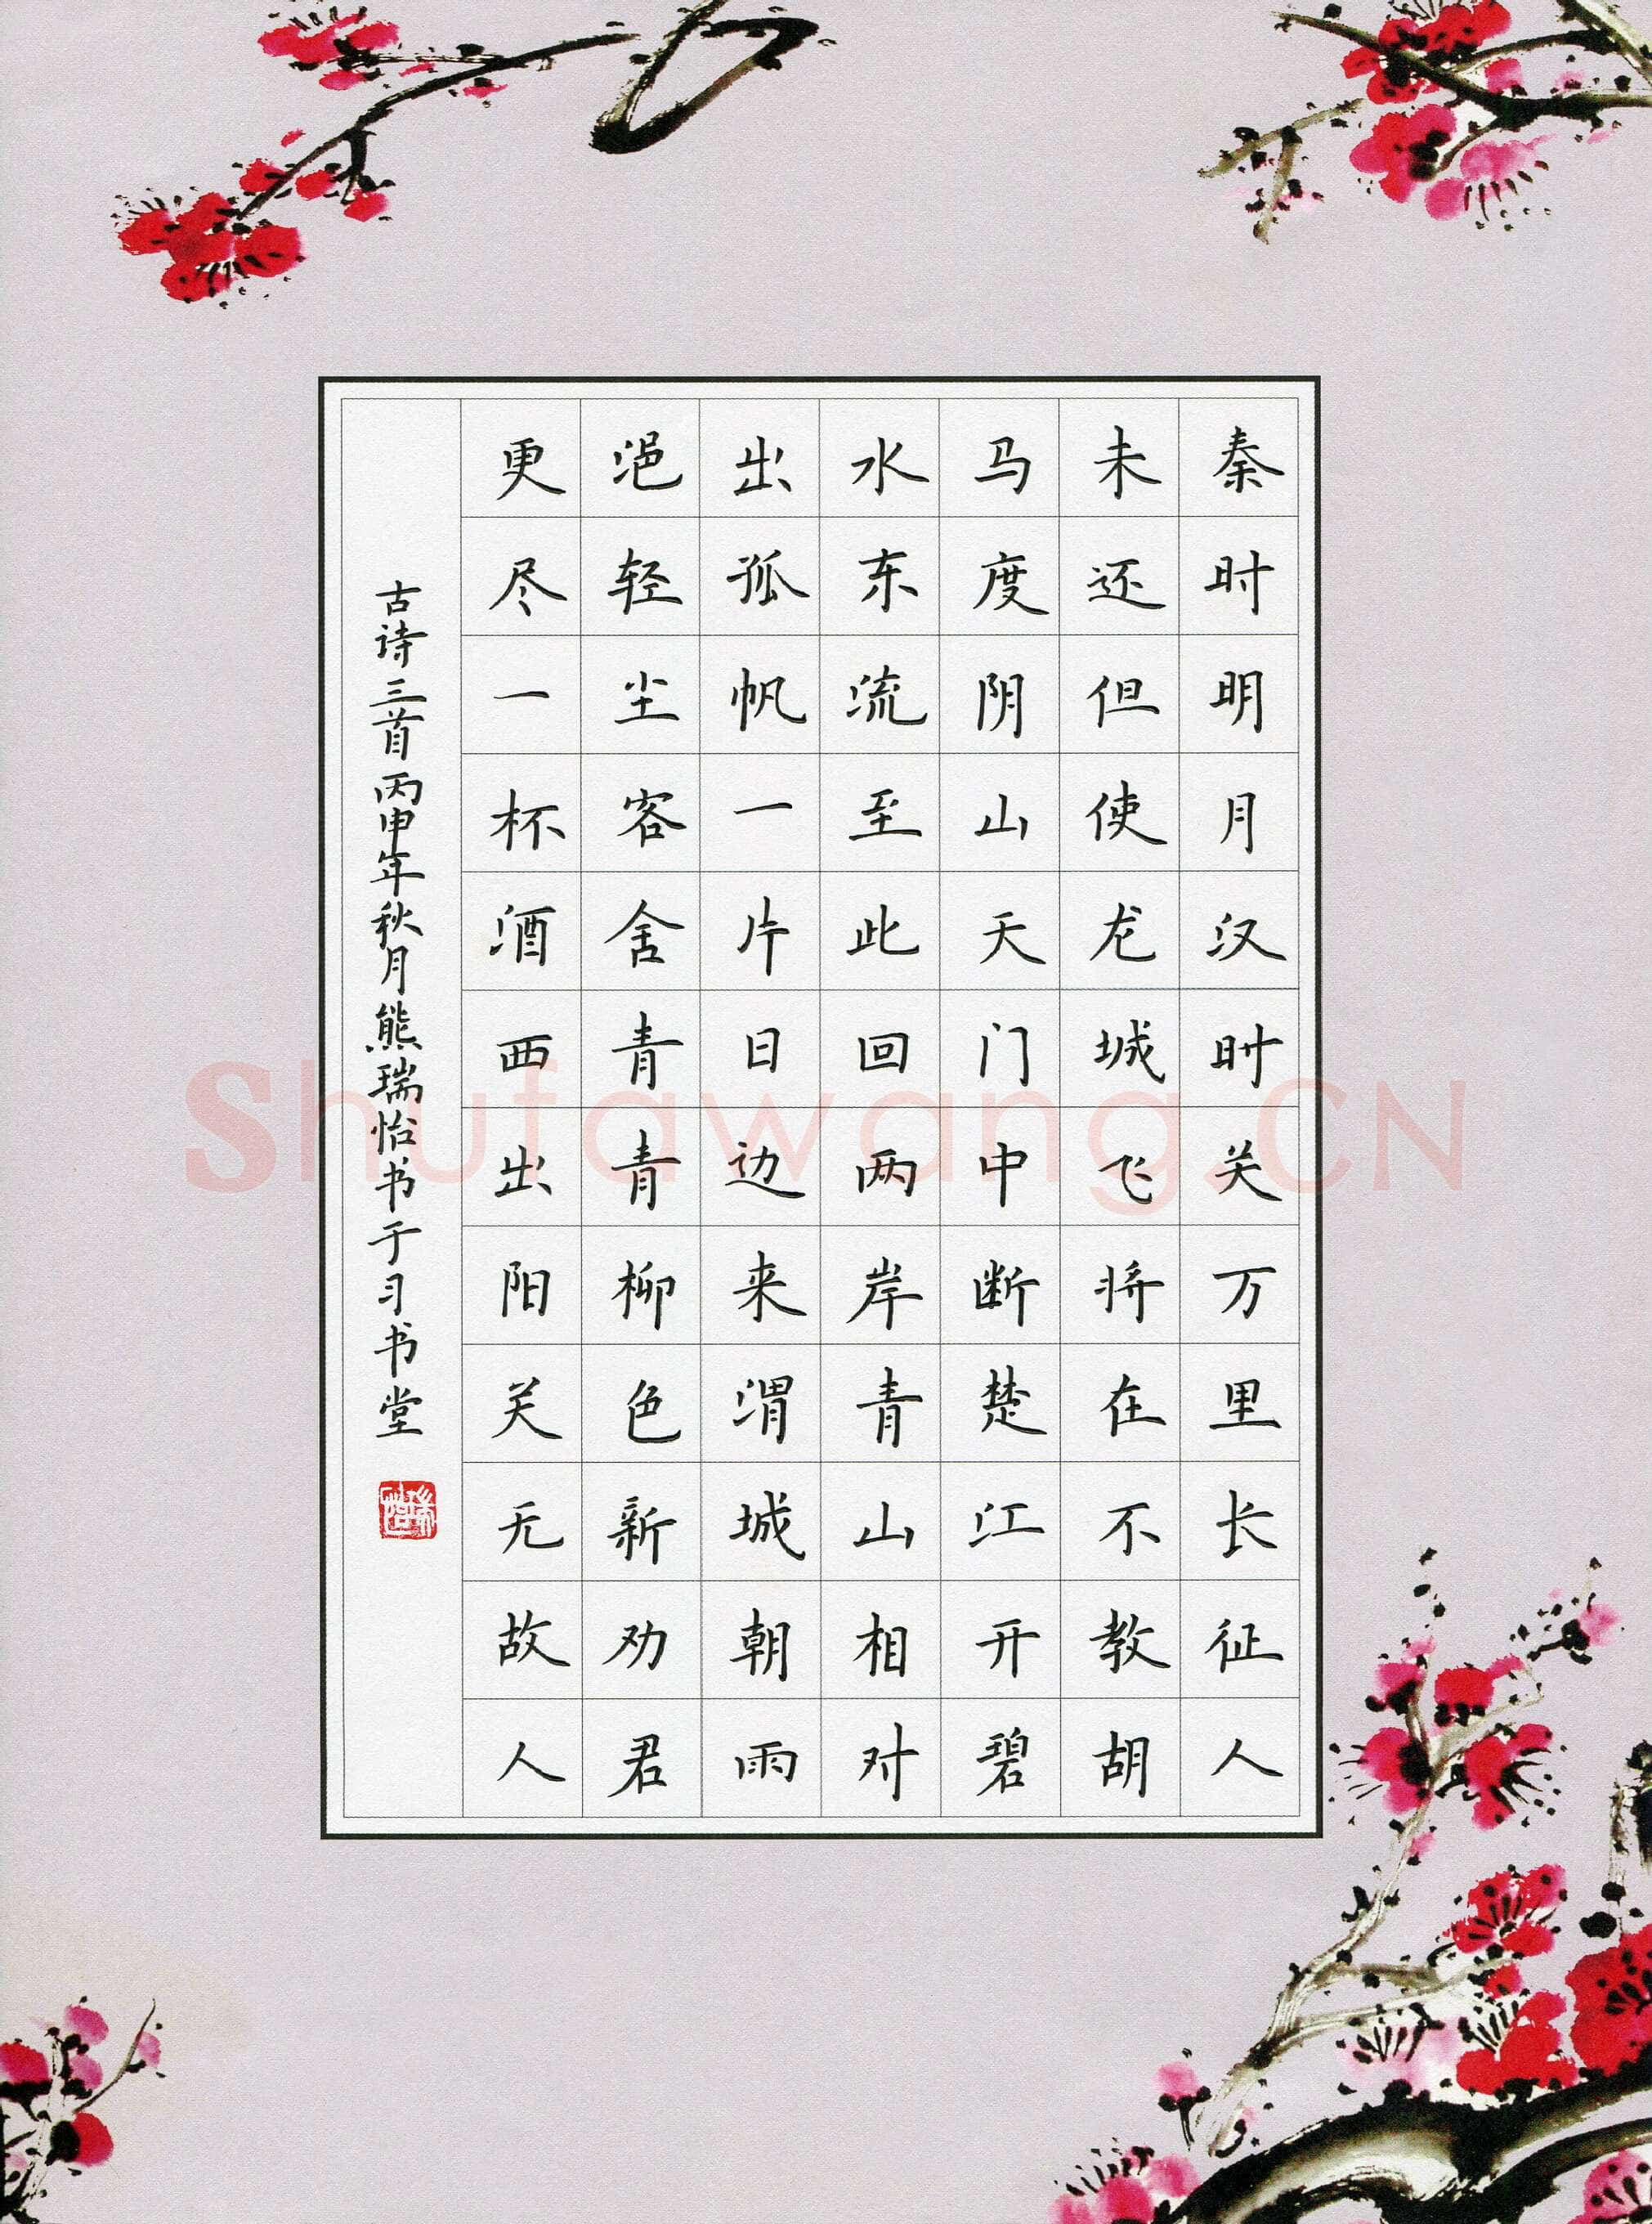 秦时明月汉时关万里长征人
未还但使龙城飞将在不教胡
马度阴山天门中断楚江开碧
水东流至此回两岸青山相对
出孤帆一片日边来渭城朝雨
浥轻尘客舍青青柳色新劝君
更尽一杯酒西出阳关无故人
古诗三首丙申年秋月熊瑞怡书于习书堂
瑞怡
Shufawang.CN